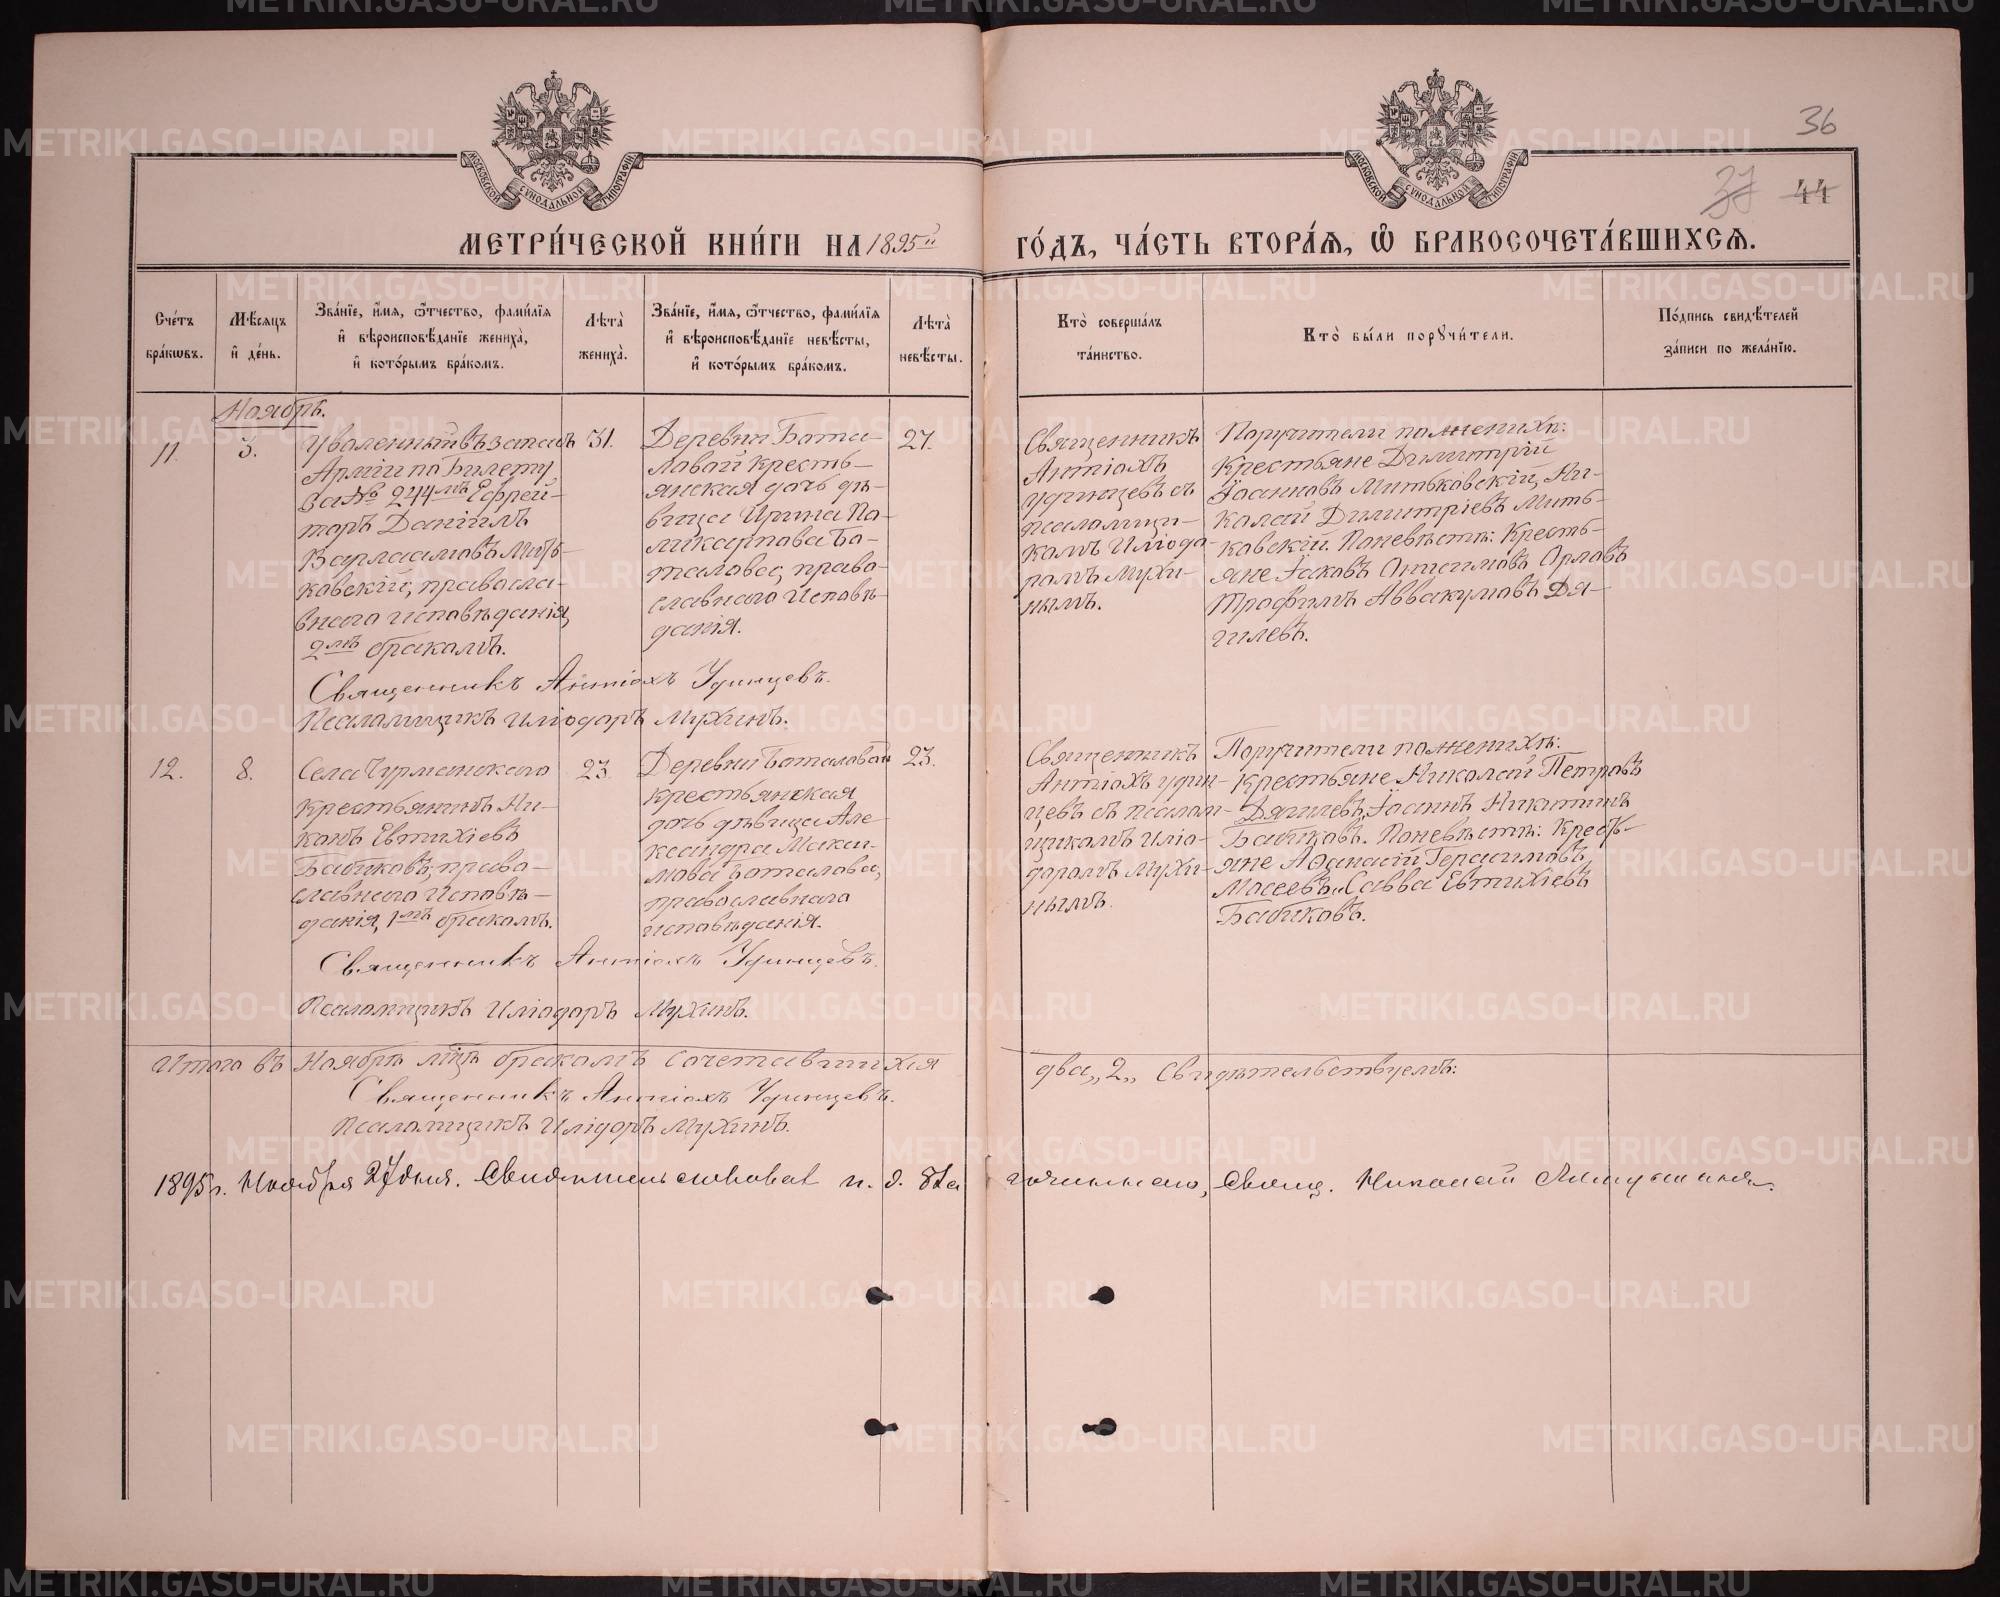 36
37 44
МОСКОВСКОЙ СѴНОДАЛЬНОЙ ТИПОГРАФІИ
МОСКОВСКОЙ СѴНОДАЛЬНОЙ ТИПОГРАФІИ
МЕТРИ́ЧЕСКОЙ КНИ́ГИ НА 1895й ГО́ДЪ, ЧА́СТЬ ВТОРА́Я, Ѽ БРАКОСОЧЕТА́ВШИХСЯ.
Сче́тъ
бра́кѡвъ.
Мѣ́сяцъ
и҆ де́нь.
Зва́нїе, и҆́мя, ѻ҆́тчество, фами́лїя
и҆ вѣроисповѣ́данїе жениха̀,
и҆ кото́рымъ бра́комъ.
Лѣта̀
жениха̀.
Зва́нїе, и҆́мя, ѻ҆́тчество, фами́лїя
и҆ вѣроисповѣ́данїе невѣ́сты,
и҆ кото́рымъ бра́комъ.
Лѣта̀
невѣ́сты.
Кто̀ соверша́лъ
та́инство.
Кто̀ бы́ли порꙋчи́тели.
По́дпись свидѣ́телей
за́писи по жела́нїю.
Ноябрь.
11.
3.
Уволенный въ запасъ
Арміи по билету
за № 244мъ Ефрей-
торъ Даніилъ
Варлаамовъ Мить-
ковскій, правосла-
внаго исповѣданія,
2мъ бракомъ.
31.
Деревни Бота-
ловой кресть-
янская дочь дѣ-
вица Ирина По-
ликарпова Бо-
талова, право-
славнаго исповѣ-
данія.
27.
Священникъ
Антіохъ
Удинцевъ съ
псаломщи-
комъ Иліодо-
ромъ Мухи-
нымъ.
Поручители по женихѣ:
Крестьяне Димитрій
Іоанновъ Митьковскій, Ни-
колай Димитріевъ Мить-
ковскій. По невѣстѣ: Кресть-
яне Іаковъ Онисимовъ Орловъ
Трофимъ Аввакумовъ Дя-
гилевъ.
Священникъ Антіохъ Удинцевъ.
Псаломщикъ Иліодоръ Мухинъ.
12.
8.
Села Чурманскаго
крестьянинъ Ни-
конъ Евтихіевъ
Бабиковъ, право-
славнаго исповѣ-
данія, 1мъ бракомъ.
23.
Деревни Боталовой
крестьянская
дочь дѣвица Але-
ксандра Макси-
мова Боталова,
православнаго
исповѣданія.
23.
Священникъ
Антіохъ Удин-
цевъ съ псалом-
щикомъ Иліо-
доромъ Мухи-
нымъ.
Поручители по женихѣ:
Крестьяне Николай Петровъ
Дягилевъ, Іоаннъ Никитинъ
Бабиковъ. По невѣстѣ: Кресть-
яне Аѳанасій Герасимовъ
Мосеевъ и Савва Евтихіевъ
Бабиковъ.
Священникъ Антіохъ Удинцевъ.
Псаломщикъ Иліодоръ Мухинъ.
Итого въ Ноябрѣ мцѣ бракомъ сочетавшихся два „2„ Свидѣтельствуемъ:
Священникъ Антіохъ Удинцевъ.
Псаломщикъ Иліодоръ Мухинъ.
1895 г. Ноября 27 дня. Свидѣтельствовалъ и. д. Благочиннаго, Свящ. Николай
METRIKI.GASO-URAL.RU